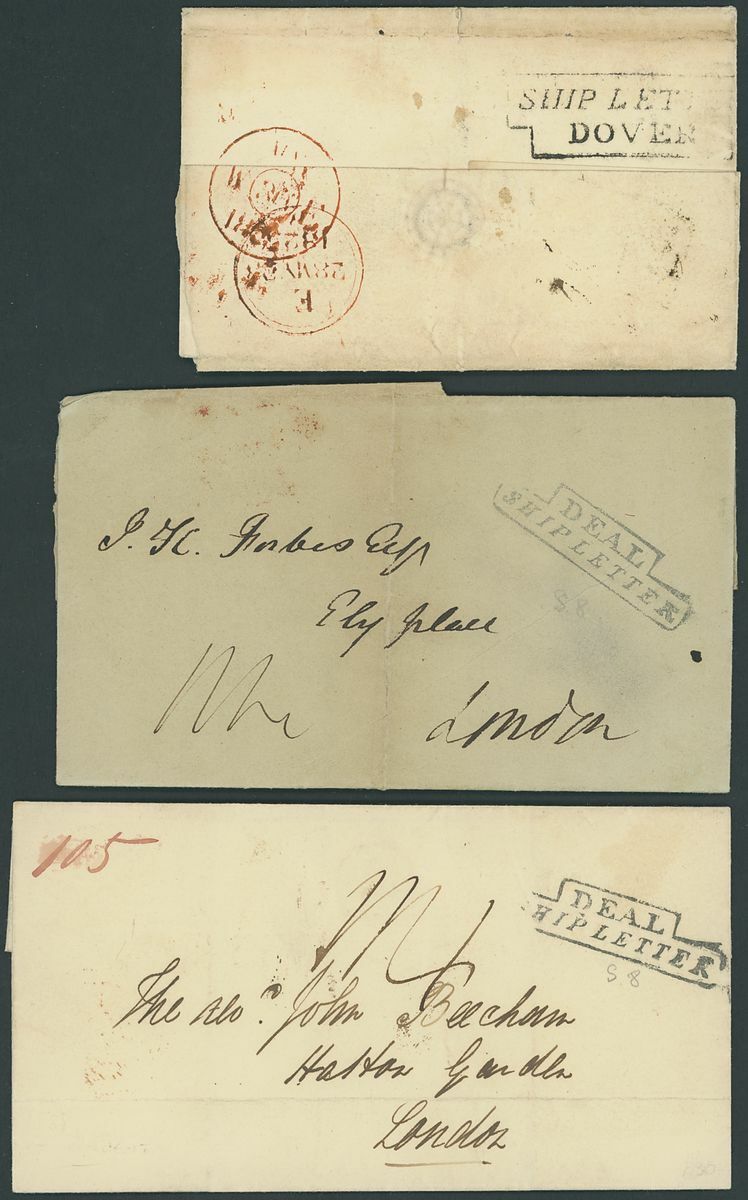 SHIP LET
DOVER
DEAL
SHIP LETTER
J. H. Forbes Esqr
S8
Ely place
London
105
DEAL
SHIP LETTER
S8
The Revd. John Beecham
Hatton Garden
London